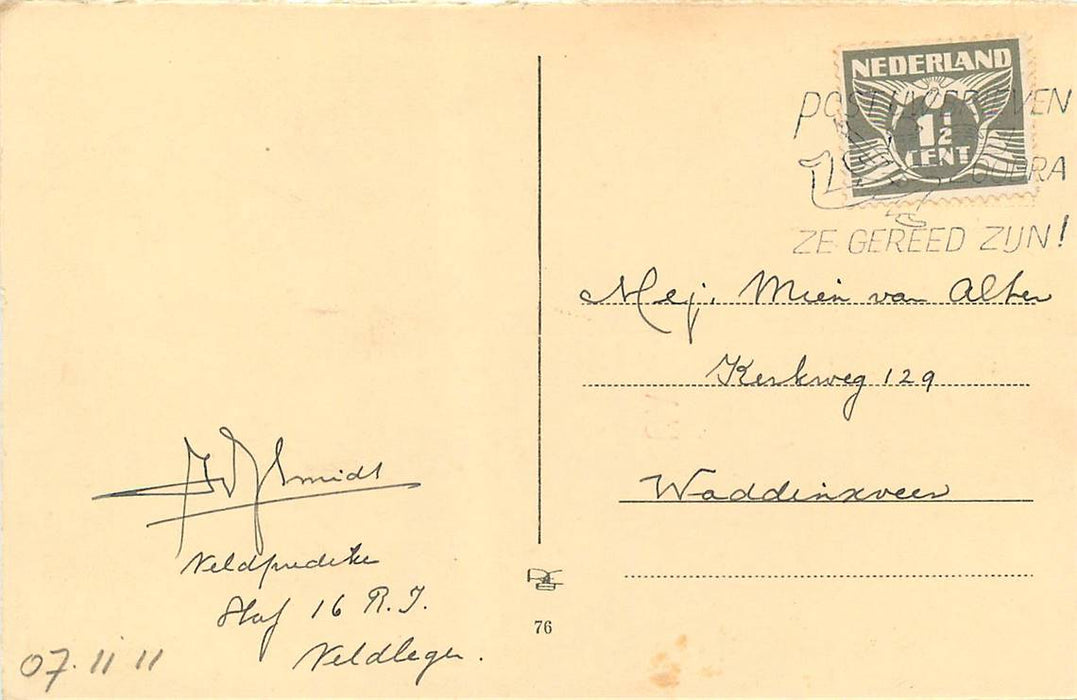 NEDERLAND
1½
CENT
POST UW BRIEVEN
ZE GEREED ZIJN!
Mej. Mien van Alten
Kerkweg 129
Waddinxveen
Smidt
Veldprediker
Staf 16 R.I.
Veldleger.
76
07.11 11